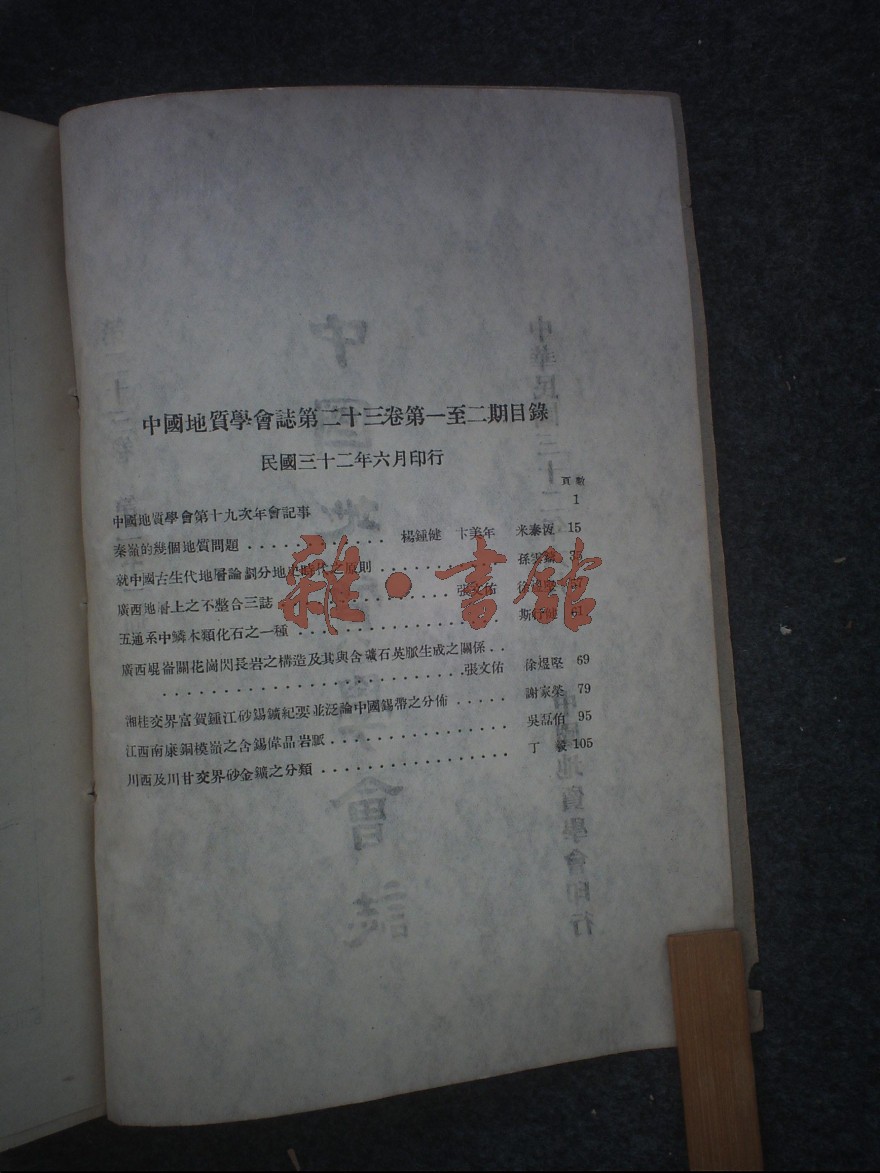 中國地質學會誌第二十三卷第一至二期目錄
民國三十二年六月印行
頁數
中國地質學會第十九次年會記事 1
秦嶺的幾個地質問題 . . . . . . . . . . . . 楊鍾健 卞美年 米泰恆 15
就中國古生代地層論劃分地史時代之原則 . . . . . . . . 孫雲鑄 35
廣西地層上之不整合三誌 . . . . . . . . . . . . 張文佑 徐煜堅
五通系中鱗木類化石之一種 . . . . . . . . . . . . . . . . 斯行健 61
廣西崐崙關花崗閃長岩之構造及其與含礦石英脈生成之關係 . .
. . . . . . . . . . . . . . . . . . . . . . . 張文佑 徐煜堅 69
湘桂交界富賀鍾江砂錫鑛紀要並泛論中國錫帶之分佈 . . . . . 謝家榮 79
江西南康銅模嶺之含錫偉晶岩脈 . . . . . . . . . . . . . . 吳磊伯 95
川西及川甘交界砂金鑛之分類 . . . . . . . . . . . . . . . 丁 毅 105
雜·書館
中國地質學會誌
中華民國三十二
中國地質學會印行